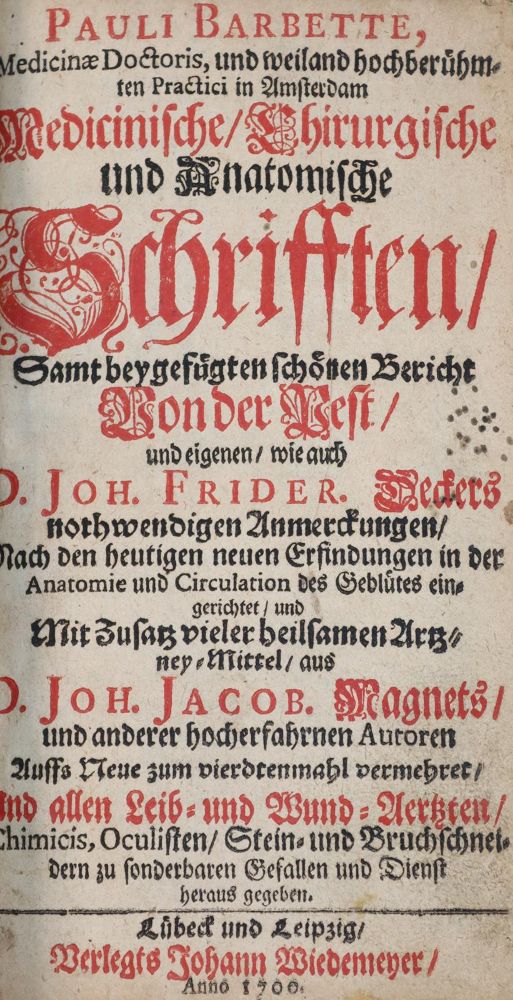 PAULI BARBETTE,
Medicinæ Doctoris, und weiland hochberühm-
ten Practici in Amsterdam
Medicinische/ Chirurgische
und Anatomische
Schrifften/
Samt beygefügten schönen Bericht
Von der Pest/
und eigenen/ wie auch
D. JOH. FRIDER. Deckers
nothwendigen Anmerckungen/
Nach den heutigen neuen Erfindungen in der
Anatomie und Circulation des Geblütes ein-
gerichtet/ und
Mit Zusatz vieler heilsamen Artz-
ney-Mittel/ aus
D. JOH. JACOB. Magnets/
und anderer hocherfahrnen Autoren
Auffs Neue zum vierdtenmahl vermehret/
Und allen Leib- und Wund-Aertzten/
Chimicis, Oculisten/ Stein- und Bruchschnei-
dern zu sonderbaren Gefallen und Dienst
heraus gegeben.
Lübeck und Leipzig/
Verlegts Johann Wiedemeyer/
Anno 1700.